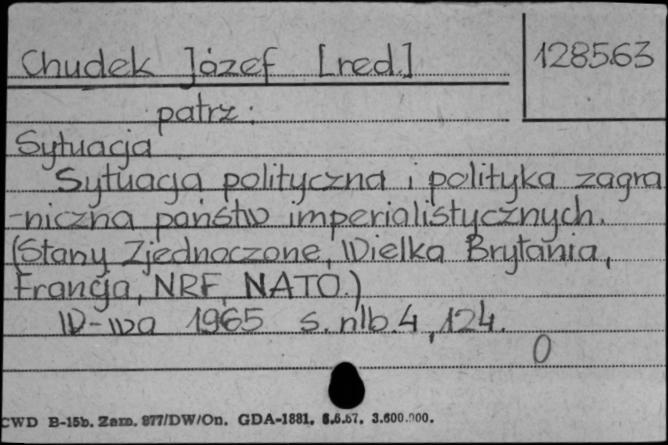 Chudek Józef [red.]
128563
patrz:
Sytuacja
Sytuacja polityczna i polityka zagra
-niczna państw imperialistycznych.
(Stany Zjednoczone, Wielka Brytania,
Francja, NRF, NATO.)
W-wa 1965 s. nlb. 4, 124.
0
CWD B-15b. Zam. 877/DW/On. GDA-1881. 6.6.67. 3.600.000.